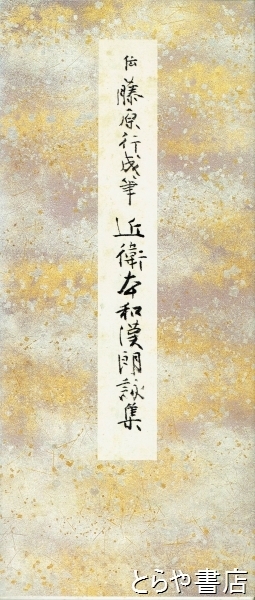 伝藤原行成筆 近衛本和漢朗詠集
とらや書店